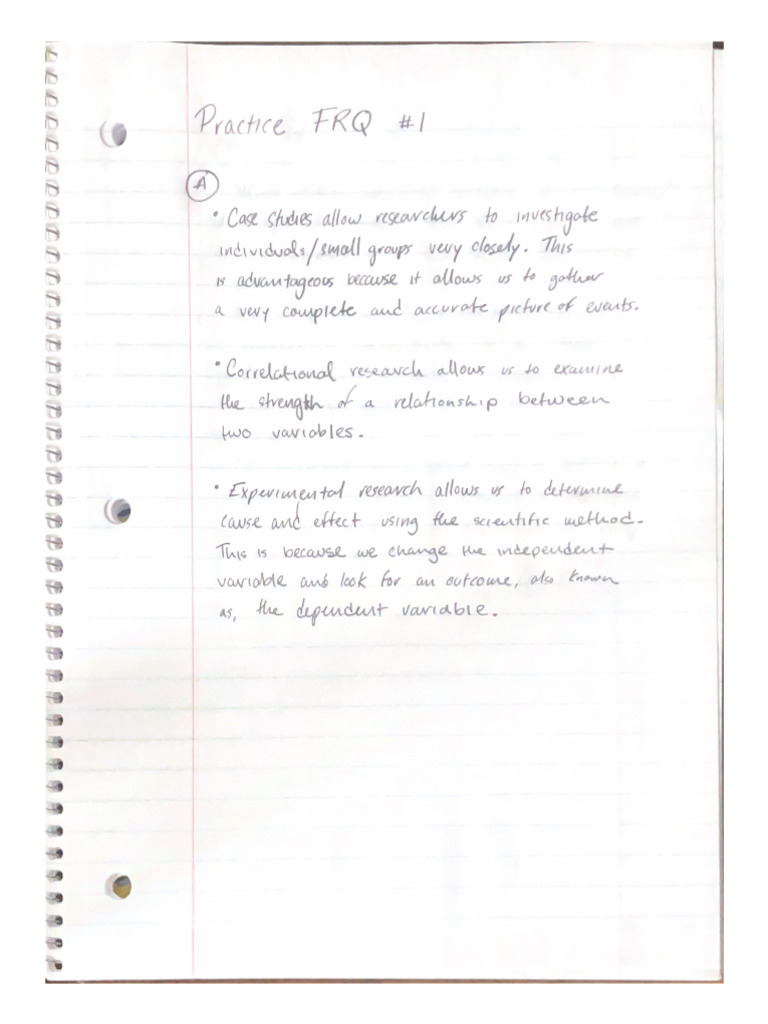 Practice FRQ #1
A
• Case studies allow researchers to investigate
individuals/small groups very closely. This
is advantageous because it allows us to gather
a very complete and accurate picture of events.
• Correlational research allows us to examine
the strength of a relationship between
two variables.
• Experimental research allows us to determine
cause and effect using the scientific method.
This is because we change the independent
variable and look for an outcome, also known
as, the dependent variable.